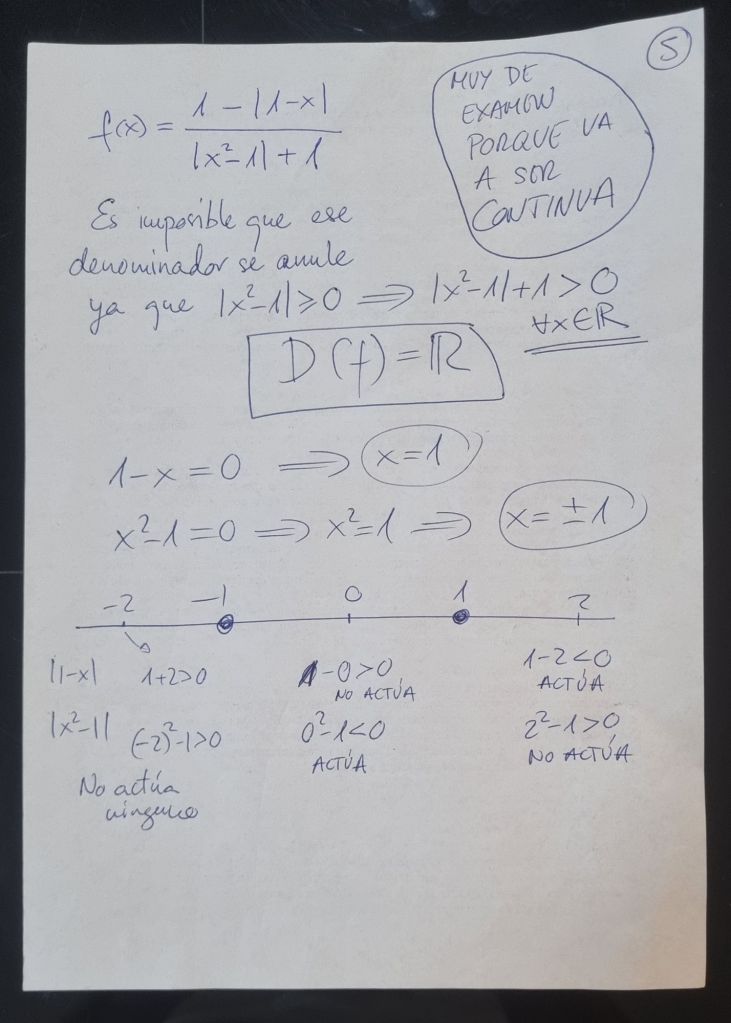 5
MUY DE
EXAMEN
PORQUE VA
A SER
CONTINUA
f(x) = (1 - |1-x|) / (|x²-1| + 1)
Es imposible que ese
denominador se anule
ya que |x²-1| ≥ 0 ⟹ |x²-1| + 1 > 0
∀x∈ℝ
D(f) = ℝ
1-x = 0 ⟹ x=1
x²-1 = 0 ⟹ x²=1 ⟹ x= ±1
-2 -1 0 1 2
|1-x| 1+2>0 1-0>0 1-2<0
NO ACTÚA ACTÚA
|x²-1| (-2)²-1>0 0²-1<0 2²-1>0
ACTÚA NO ACTÚA
No actúa
ninguno